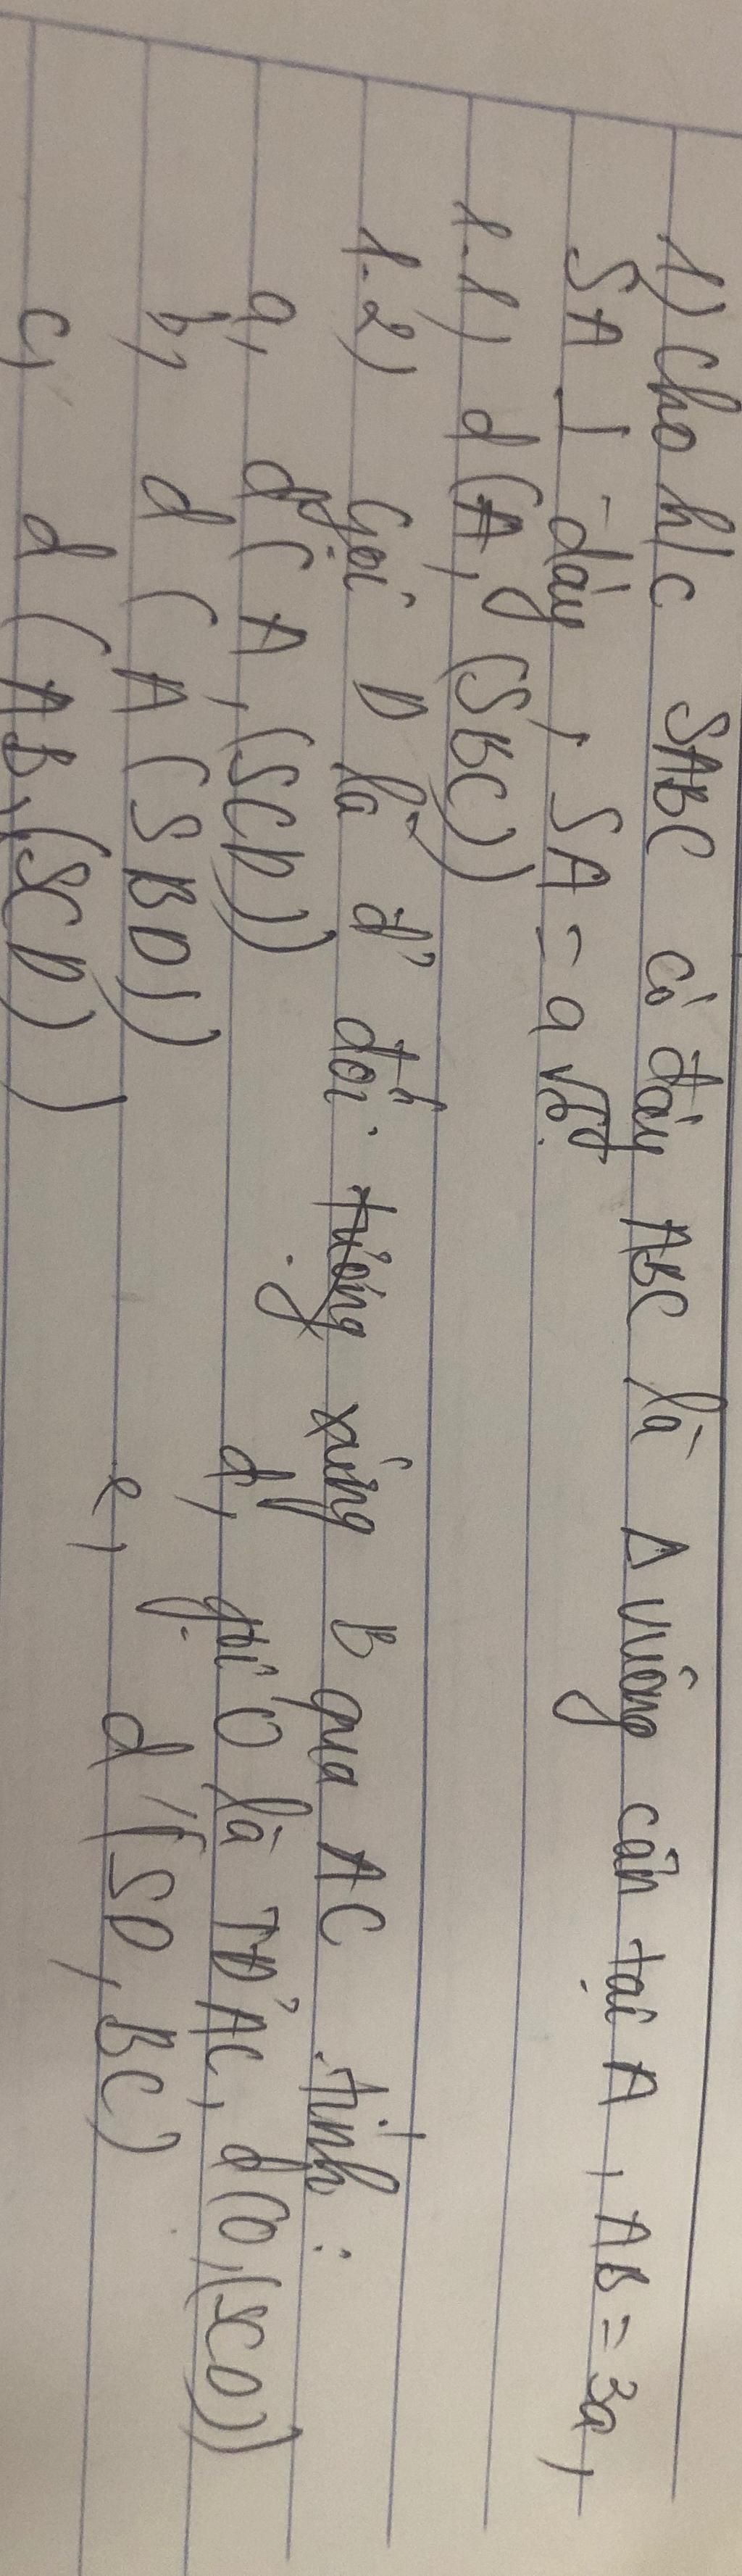 1) Cho h/c SABC có đáy ABC là Δ vuông cân tại A, AB = 3a,
SA ⊥ đáy, SA = a√6.
1.1) d(A, (SBC))
1.2) Gọi D là đ' đối tượng xứng B qua AC tính:
a, d(A, (SCD)) d, gọi O là TĐ' AC, d(O, (SCD))
b, d(A(SBD)) e, d(SD, BC)
c, d(AB, (SCD))